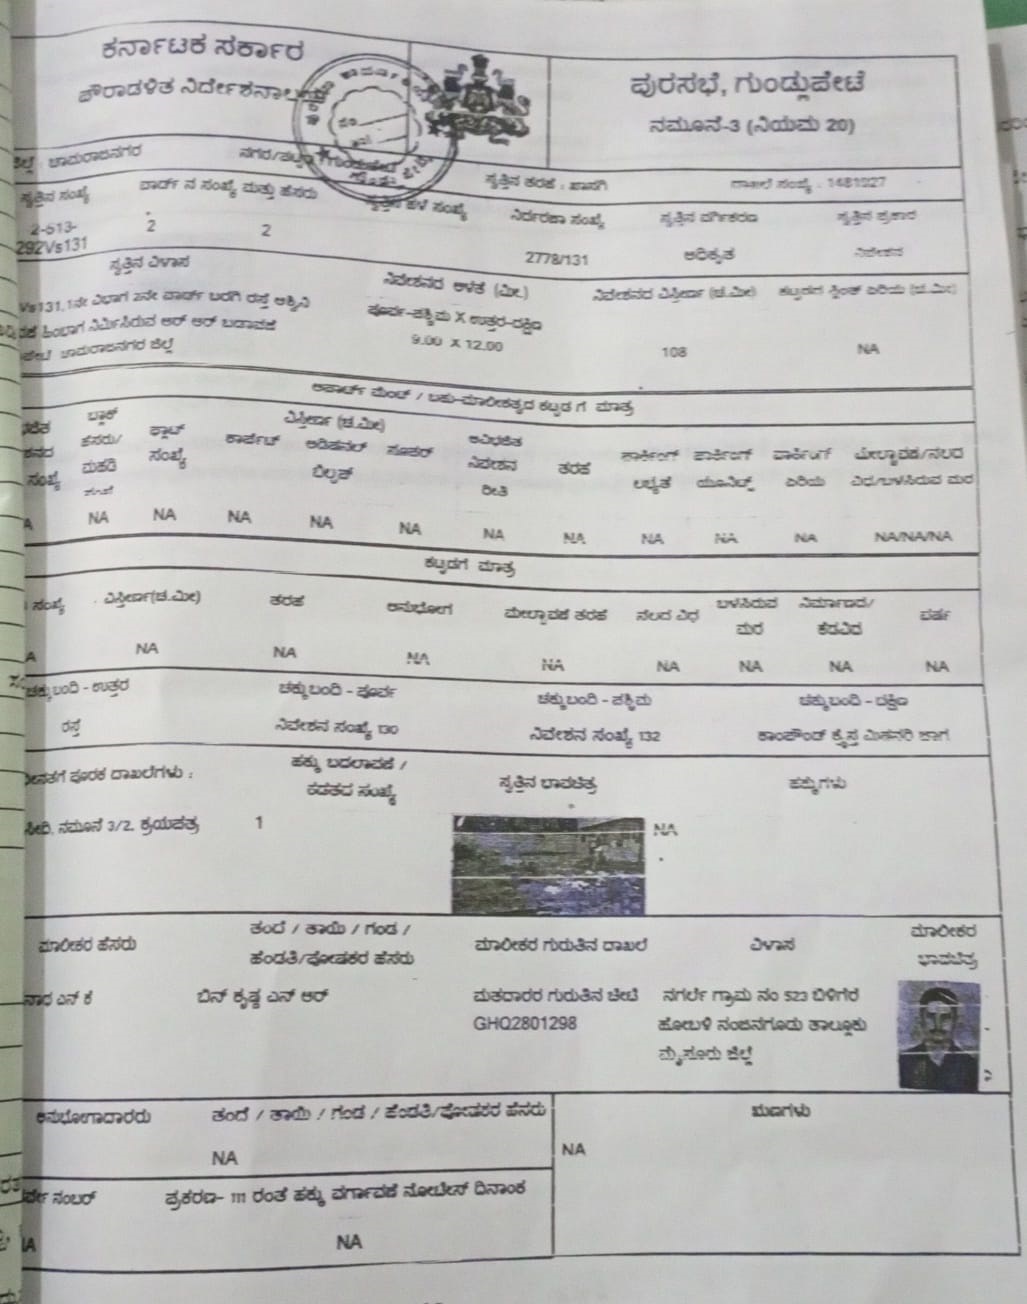 ಕರ್ನಾಟಕ ಸರ್ಕಾರ
ಪೌರಾಡಳಿತ ನಿರ್ದೇಶನಾಲಯ
ಪುರಸಭೆ, ಗುಂಡ್ಲುಪೇಟೆ
ನಮೂನೆ-3 (ನಿಯಮ 20)
ಚಾಮರಾಜನಗರ ನಗರ/ಪಟ್ಟಣ : ಗುಂಡ್ಲುಪೇಟೆ ಸ್ವತ್ತಿನ ತರಹೆ : ಖಾಸಗಿ ದಾಖಲೆ ಸಂಖ್ಯೆ : 1481927
ಸ್ವತ್ತಿನ ಸಂಖ್ಯೆ ವಾರ್ಡ್ ನ ಸಂಖ್ಯೆ ಮತ್ತು ಹೆಸರು ಸ್ವತ್ತಿನ ಹಳೆ ಸಂಖ್ಯೆ ನಿರ್ದರಣಾ ಸಂಖ್ಯೆ ಸ್ವತ್ತಿನ ವರ್ಗಿಕರಣ ಸ್ವತ್ತಿನ ಪ್ರಕಾರ
2-513-
292Vs131 2 2 2778/131 ಅಧಿಕೃತ ನಿವೇಶನ
ಸ್ವತ್ತಿನ ವಿಳಾಸ ನಿವೇಶನದ ಅಳತೆ (ಮೀ.) ನಿವೇಶನದ ವಿಸ್ತೀರ್ಣ (ಚ.ಮೀ) ಕಟ್ಟಡದ ಪ್ಲಿಂತ್ ಏರಿಯ (ಚ.ಮೀ)
Vs131,1ನೇ ವಿಭಾಗ 2ನೇ ವಾರ್ಡ್ ಬರಗಿ ರಸ್ತೆ ಅಶ್ವಿನಿ ಪೂರ್ವ-ಪಶ್ಚಿಮ X ಉತ್ತರ-ದಕ್ಷಿಣ
ಹಿಂಭಾಗ ನಿರ್ಮಿಸಿರುವ ಆರ್ ಆರ್ ಬಡಾವಣೆ 9.00 X 12.00 108 NA
ಚಾಮರಾಜನಗರ ಜಿಲ್ಲೆ
ಅಪಾರ್ಟ್ ಮೆಂಟ್ / ಬಹು-ಮಾಲೀಕತ್ವದ ಕಟ್ಟಡ ಗೆ ಮಾತ್ರ
ಬ್ಲಾಕ್ ವಿಸ್ತೀರ್ಣ (ಚ.ಮೀ) ಅವಿಭಜಿತ
ಹೆಸರು/ ಫ್ಲಾಟ್ ಕಾರ್ಪೆಟ್ ಅಡಿಷನಲ್ ಸೂಪರ್ ನಿವೇಶನ ತರಹೆ ಪಾರ್ಕಿಂಗ್ ಪಾರ್ಕಿಂಗ್ ಪಾರ್ಕಿಂಗ್ ಮೇಲ್ಚಾವಣಿ/ನೆಲದ
ಸಂಖ್ಯೆ ಮಹಡಿ ಸಂಖ್ಯೆ ಬಿಲ್ಟಪ್ ರೀತಿ ಲಭ್ಯತೆ ಯೂನಿಟ್ಸ್ ಏರಿಯ ವಿಧ/ಬಳಸಿರುವ ಮರ
NA NA NA NA NA NA NA NA NA NA NA/NA/NA
ಕಟ್ಟಡಗೆ ಮಾತ್ರ
ಸಂಖ್ಯೆ ವಿಸ್ತೀರ್ಣ(ಚ.ಮೀ) ತರಹೆ ಅನುಭೋಗ ಮೇಲ್ಚಾವಣಿ ತರಹೆ ನೆಲದ ವಿಧ ಬಳಸಿರುವ ಮರ ನಿರ್ಮಾಣದ/ ಕೆಡವಿದ ವರ್ಷ
NA NA NA NA NA NA NA NA
ಚಕ್ಕುಬಂದಿ - ಉತ್ತರ ಚಕ್ಕುಬಂದಿ - ಪೂರ್ವ ಚಕ್ಕುಬಂದಿ - ಪಶ್ಚಿಮ ಚಕ್ಕುಬಂದಿ - ದಕ್ಷಿಣ
ರಸ್ತೆ ನಿವೇಶನ ಸಂಖ್ಯೆ 130 ನಿವೇಶನ ಸಂಖ್ಯೆ 132 ಕಾಂಪೌಂಡ್ ಕ್ರೈಸ್ತ ಮಿಶನರಿ ಜಾಗ
ಪೂರಕ ದಾಖಲೆಗಳು : ಹಕ್ಕು ಬದಲಾವಣೆ / ಸ್ವತ್ತಿನ ಭಾವಚಿತ್ರ ಹಕ್ಕುಗಳು
ಕಡತದ ಸಂಖ್ಯೆ
ನಮೂನೆ 3/2, ಕ್ರಯಪತ್ರ 1 NA
ಮಾಲೀಕರ ಹೆಸರು ತಂದೆ / ತಾಯಿ / ಗಂಡ / ಮಾಲೀಕರ ಗುರುತಿನ ದಾಖಲೆ ವಿಳಾಸ ಮಾಲೀಕರ
ಹೆಂಡತಿ/ಪೋಷಕರ ಹೆಸರು ಭಾವಚಿತ್ರ
ಎನ್ ಕೆ ಬಿನ್ ಕೃಷ್ಣ ಎನ್ ಆರ್ ಮತದಾರರ ಗುರುತಿನ ಚೀಟಿ ನಗರ್ಲೆ ಗ್ರಾಮ ನಂ 523 ಬಿಳಿಗೆರೆ
GHQ2801298 ಹೋಬಳಿ ನಂಜನಗೂಡು ತಾಲ್ಲೂಕು
ಮೈಸೂರು ಜಿಲ್ಲೆ
ಅನುಭೋಗದಾರರು ತಂದೆ / ತಾಯಿ / ಗಂಡ / ಹೆಂಡತಿ/ಪೋಷಕರ ಹೆಸರು ಋಣಗಳು
NA NA
ನಂಬರ್ ಪ್ರಕರಣ- 111 ರಂತೆ ಹಕ್ಕು ವರ್ಗಾವಣೆ ನೋಟೀಸ್ ದಿನಾಂಕ
NA